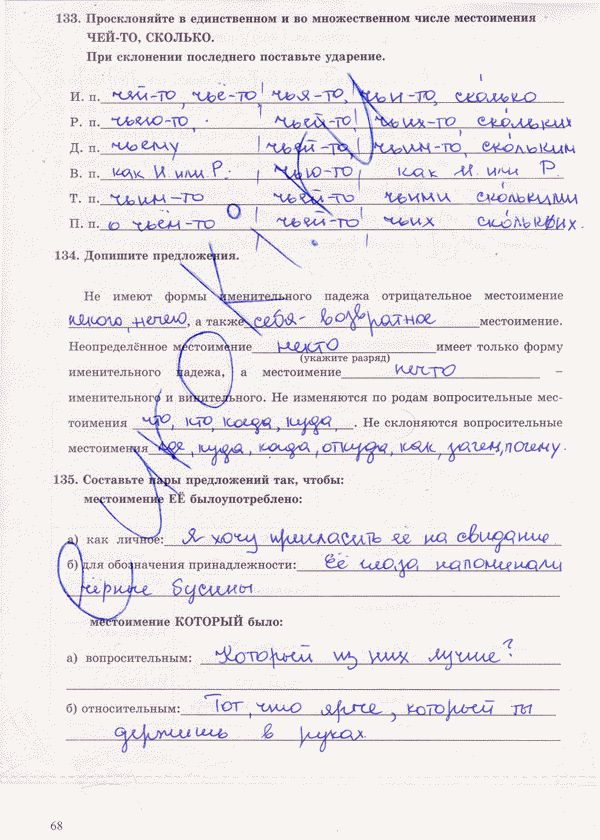 133. Просклоняйте в единственном и во множественном числе местоимения
ЧЕЙ-ТО, СКОЛЬКО.
При склонении последнего поставьте ударение.
И. п. чей-то, чьё-то, чья-то, чьи-то, ско́лько
Р. п. чьего-то, чьей-то, чьих-то, ско́льких
Д. п. чьему чьей-то, чьим-то, ско́льким
В. п. как И. или Р. чью-то как И. или Р
Т. п. чьим-то чьей-то чьими ско́лькими
П. п. о чьём-то чьей-то чьих ско́льких.
134. Допишите предложения.
Не имеют формы именительного падежа отрицательное местоимение
некого, нечего, а также себя - возвратное местоимение.
Неопределённое местоимение некто имеет только форму
(укажите разряд)
именительного падежа, а местоимение нечто –
именительного и винительного. Не изменяются по родам вопросительные мес-
тоимения что, кто, когда, куда. Не склоняются вопросительные
местоимения где, куда, когда, откуда, как, зачем, почему.
135. Составьте пары предложений так, чтобы:
местоимение ЕЁ былоупотреблено:
а) как личное: Я хочу пригласить её на свидание
б) для обозначения принадлежности: Её глаза напоминали
чёрные бусины
местоимение КОТОРЫЙ было:
а) вопросительным: Который из них лучше?
б) относительным: Тот, что ярче, который ты
держишь в руках
68